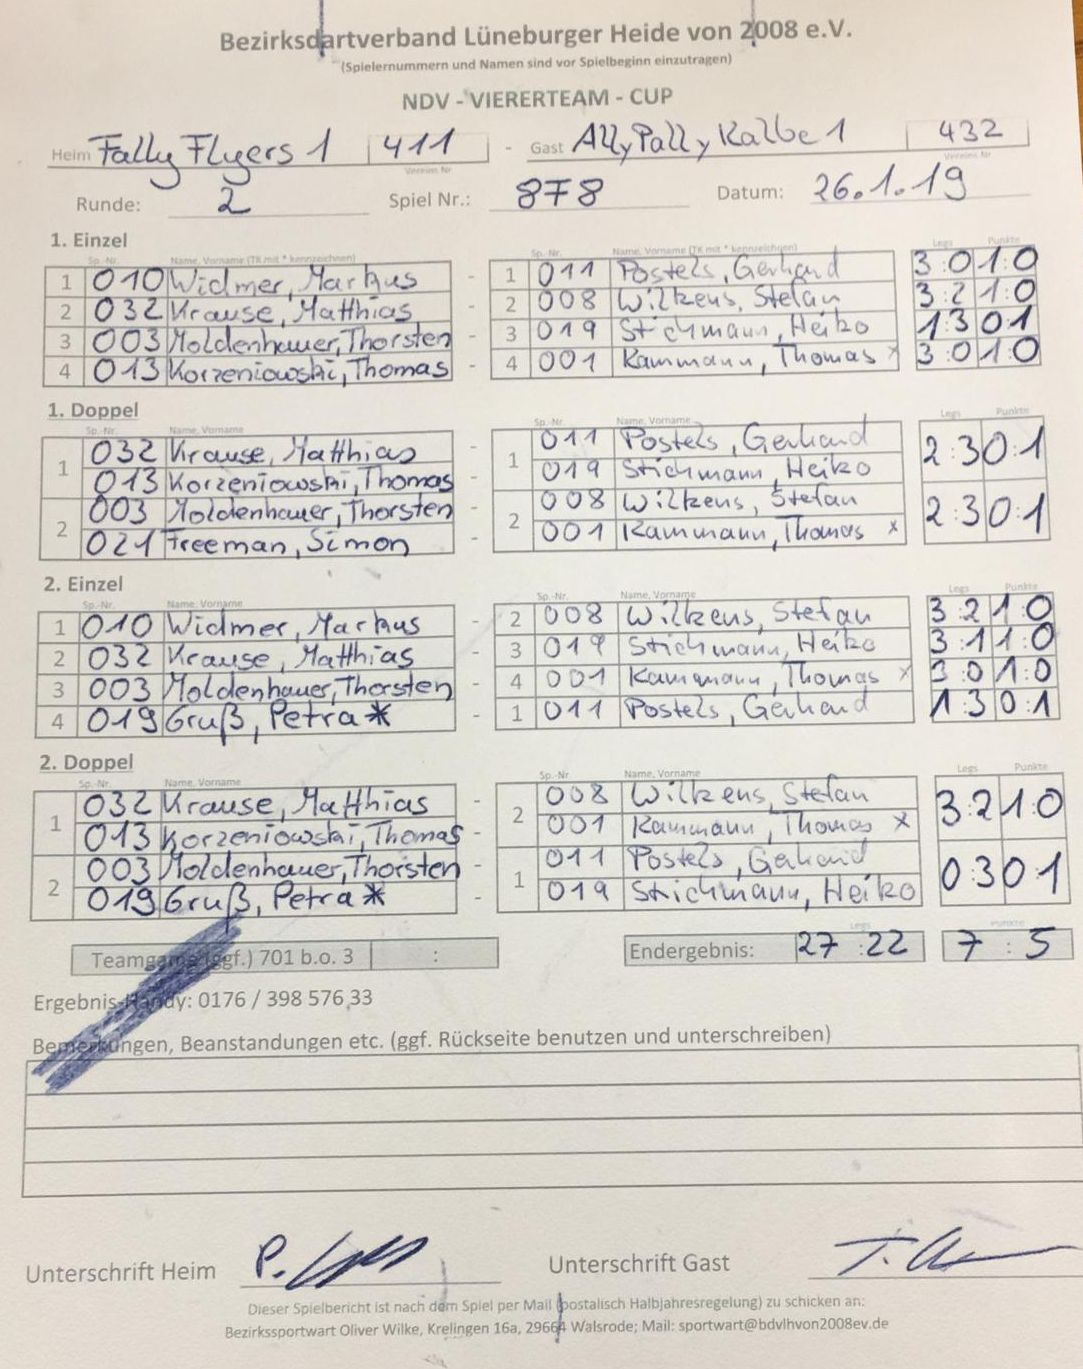 Bezirksdartverband Lüneburger Heide von 2008 e.V.
(Spielernummern und Namen sind vor Spielbeginn einzutragen)
NDV - VIERERTEAM - CUP
Heim Fally Flyers 1 411 - Gast AllyPally Kalbe 1 432
Vereins Nr Vereins Nr
Runde: 2 Spiel Nr.: 878 Datum: 26.1.19
1. Einzel
Sp.-Nr. Name, Vorname (TK mit * kennzeichnen) Sp.-Nr. Name, Vorname (TK mit * kennzeichnen) Legs Punkte
1 010 Widmer, Markus - 1 011 Postels, Gerhard 3:0 1:0
2 032 Krause, Matthias - 2 008 Wilkens, Stefan 3:2 1:0
3 003 Moldenhauer, Thorsten - 3 019 Stichmann, Heiko 1:3 0:1
4 013 Korzeniowski, Thomas - 4 001 Kammann, Thomas x 3:0 1:0
1. Doppel
Sp.-Nr. Name, Vorname Sp.-Nr. Name, Vorname Legs Punkte
1 032 Krause, Matthias - 1 011 Postels, Gerhard 2:3 0:1
013 Korzeniowski, Thomas - 019 Stichmann, Heiko
2 003 Moldenhauer, Thorsten - 2 008 Wilkens, Stefan 2:3 0:1
021 Freeman, Simon - 001 Kammann, Thomas x
2. Einzel
Sp.-Nr. Name, Vorname Sp.-Nr. Name, Vorname Legs Punkte
1 010 Widmer, Markus - 2 008 Wilkens, Stefan 3:2 1:0
2 032 Krause, Matthias - 3 019 Stichmann, Heiko 3:1 1:0
3 003 Moldenhauer, Thorsten - 4 001 Kammann, Thomas x 3:0 1:0
4 019 Gruß, Petra* - 1 011 Postels, Gerhard 1:3 0:1
2. Doppel
Sp.-Nr. Name, Vorname Sp.-Nr Name, Vorname Legs Punkte
1 032 Krause, Matthias - 2 008 Wilkens, Stefan 3:2 1:0
013 Korzeniowski, Thomas - 001 Kammann, Thomas x
2 003 Moldenhauer, Thorsten - 1 011 Postels, Gerhard 0:3 0:1
019 Gruß, Petra* - 019 Stichmann, Heiko
Legs Punkte
Teamgame (ggf.) 701 b.o. 3 : Endergebnis: 27 : 22 7 : 5
Ergebnis-Handy: 0176 / 398 576 33
Bemerkungen, Beanstandungen etc. (ggf. Rückseite benutzen und unterschreiben)
Unterschrift Heim P. Unterschrift Gast T.
Dieser Spielbericht ist nach dem Spiel per Mail (postalisch Halbjahresregelung) zu schicken an:
Bezirkssportwart Oliver Wilke, Krelingen 16a, 29664 Walsrode; Mail: sportwart@bdvlhvon2008ev.de